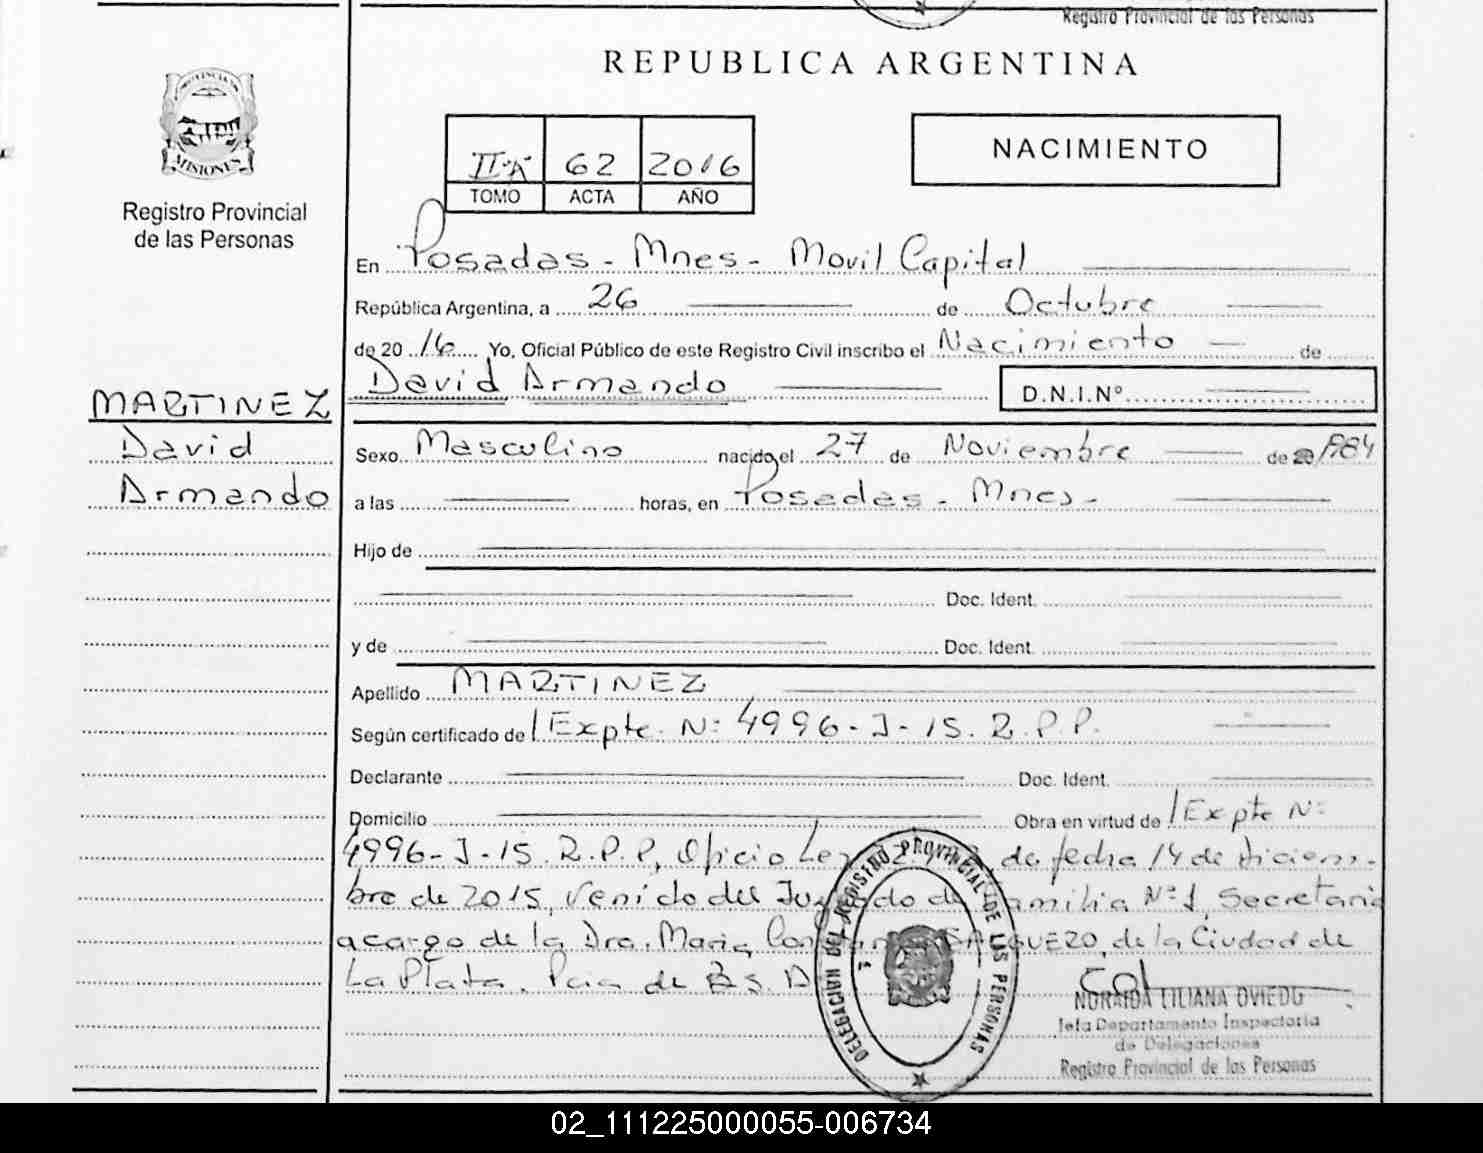 Registro Provincial de las Personas
REPUBLICA ARGENTINA
PROVINCIA DE
MISIONES
Registro Provincial
de las Personas
62 2016
TOMO ACTA AÑO
NACIMIENTO
En Posadas - Mnes - Movil Capital
República Argentina, a 26 de Octubre
de 20 16 Yo, Oficial Público de este Registro Civil inscribo el Nacimiento de
David Armando D.N.I.Nº
MARTINEZ
David
Armando
Sexo Masculino nacido el 27 de Noviembre de 1984
a las horas, en Posadas - Mnes -
Hijo de
Doc. Ident.
y de Doc. Ident.
Apellido MARTINEZ
Según certificado de Expte. Nº 4996-J-15. R.P.P.
Declarante Doc. Ident.
Domicilio Obra en virtud de Expte Nº
4996-J-15. R.P.P, Oficio Ley de fecha 14 de diciem-
bre de 2015, venido del Juzgado de Familia Nº1, Secretaria
a cargo de la Dra. Maria de la Ciudad de
La Plata. Pcia de Bs. A
DELEGACION DEL REGISTRO PROVINCIAL DE LAS PERSONAS
NORAIDA LILIANA OVIEDO
Jefa Departamento Inspectoria
de Delegaciones
Registro Provincial de las Personas
02_111225000055-006734